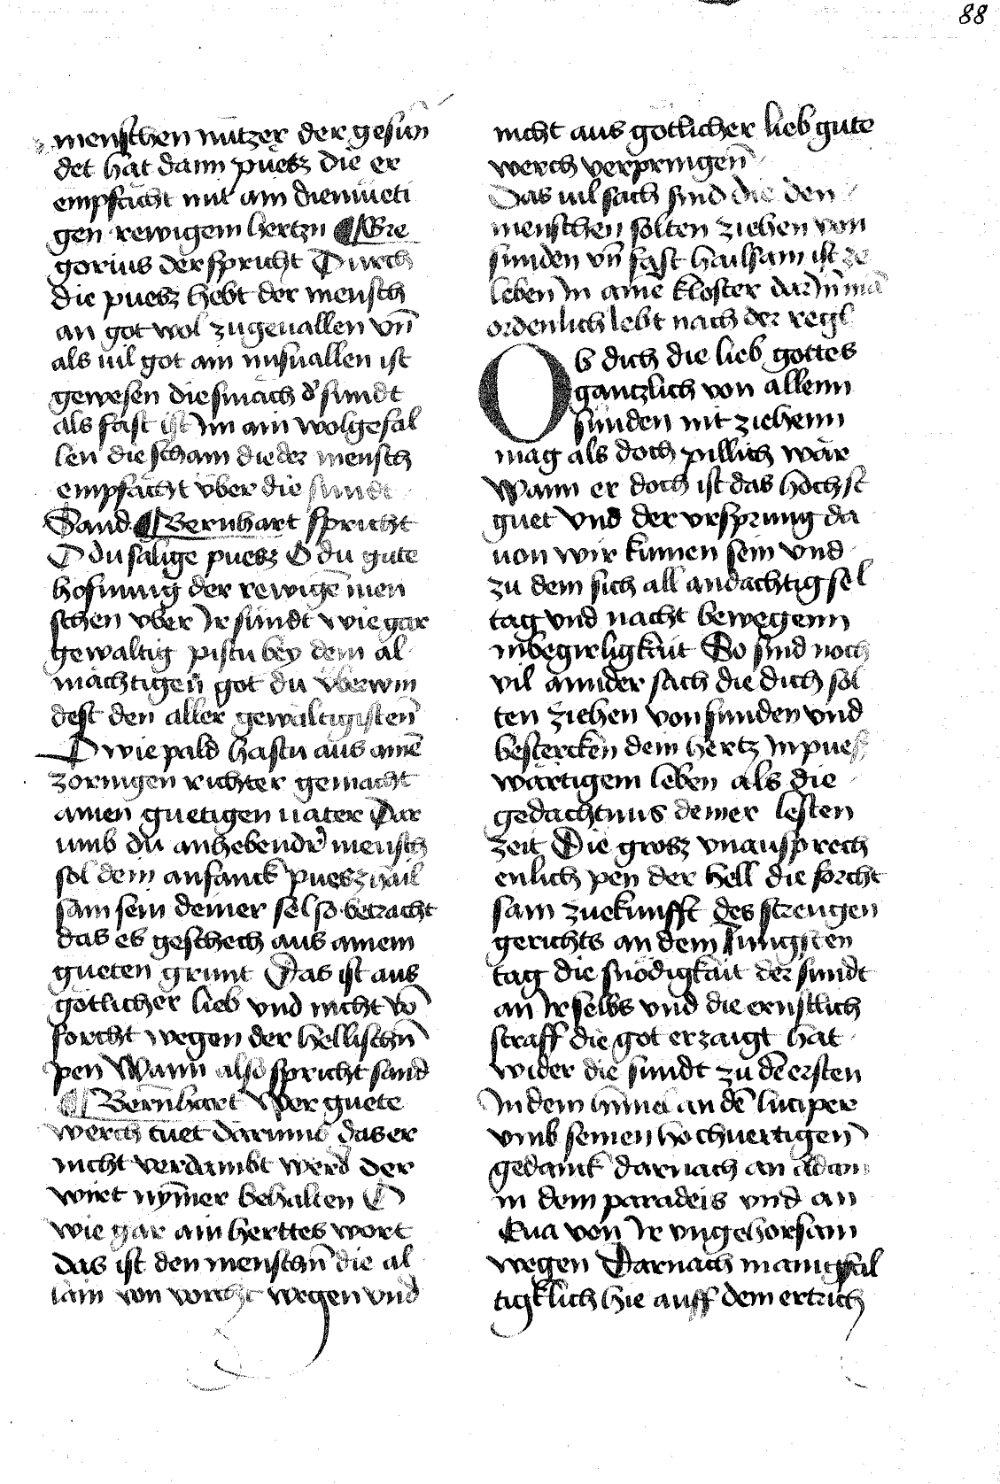 88
menschen nützer der gesün
det hat dann puesz die er
empfächt mit am diemüeti
gen rewigem hertzn ¶ Gre
gorius der spricht Durch
die puesz hebt der mensch
an got wol zugeuallen vn̄
als uil got am missuallen ist
gewesen die smäch d' sundt
als fast ist Im ain wolgefal
len die scham die der mensch
empfächt vber die sundt
Sand ¶ Bernhart spricht
O du sälige puesz O du gute
hofnung der rewigē men
schen vber Ir sündt wie gar
gewaltig pistu bey dem al
mächtigen got du vberwin
dest den aller gewaltigisten
O wie pald hastu aus amē
zornigen richter gemacht
ainen guetigen uater Dar
umb du anhebender mensch
sol dein anfanck puesz hail
sam sein deiner sel so betracht
das es geschech aus ainem
gueten grunt Das ist aus
götlicher lieb vnd nicht vō
forcht wegen der hellischn̄
pen Wann also spricht sand
¶ Bernhart Wer guete
werch tuet darumb das er
nicht verdambt werd der
wirt nym̄er behalten O
wie gar ain herttes wort
das ist den menschn̄ die al
lain von vorcht wegen vnd
nicht aus götlicher lieb gute
werch verpringen̄
Das uil sach sind die den
menschen solten ziehen von
sunden vn̄ fast hailsam ist ze
leben In aine kloster dar In mā
ordenlich lebt nach der regl
Ob dich die lieb gottes
gäntzlich von allenn
sünden nit ziehenn
mag als doch pillich wär
Wann er doch ist das höchst
guet vnd der vrsprung da
uon wir kumen sein vnd
zu dem sich all andächtig sel
tag vnd nacht bewegenn
in begirligkait So sind noch
vil annder sach die dich sol
ten ziehen von sunden vnd
bestercken dein hertz In pues
wärtigem leben als die
gedächtnus deiner lesten
zeit Die grosz vnaussprech
enlich pen der hell die forcht
sam zuekunfft des strengen
gerichts an dem Jungsten
tag die snödigkait der sundt
an Ir selbs vnd die ernstlich
straff die got erzaigt hat
wider die sundt zu dē ersten
In dem himel an dē luciper
vmb seinen hochuertigen
gedanck darnach an adam
in dem paradeis vnd an
Eua von Ir vngehorsam
wegen Darnach manigfäl
tigklich hie auff dem ertrich